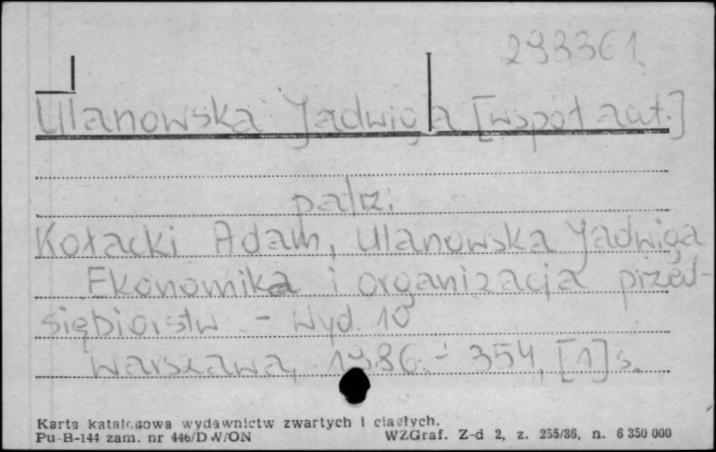 293361
Ulanowska Jadwiga [współaut.]
patrz:
Kołacki Adam, Ulanowska Jadwiga
Ekonomika i organizacja przed-
siębiorstw. - Wyd. 10
Warszawa, 1986. - 354, [1] s.
Karta katalogowa wydawnictw zwartych i ciągłych.
Pu-B-144 zam. nr 446/DW/ON WZGraf. Z-d 2, z. 255/86, n. 6 350 000